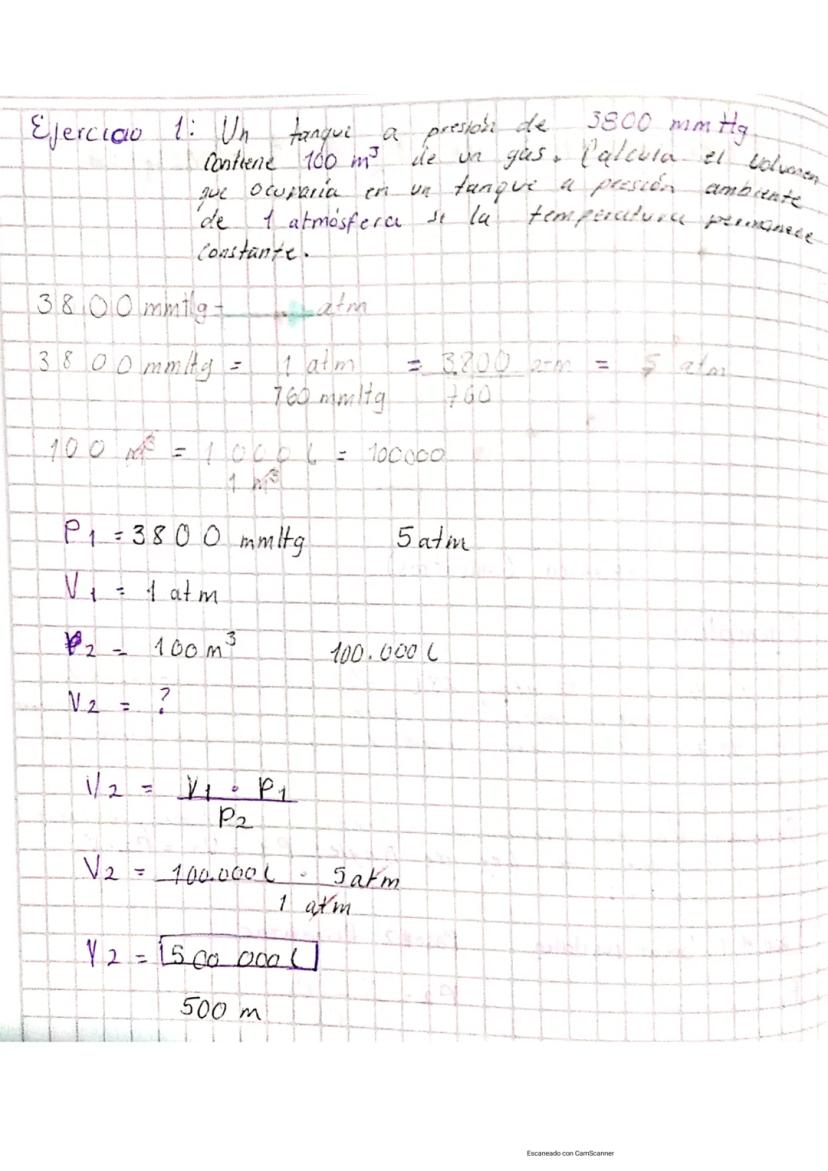 Ejercicio 1: Un tanque a presión de 3800 mmHg
contiene 100 m³ de un gas. Calcula el volumen
que ocuparía en un tanque a presión ambiente
de 1 atmósfera si la temperatura permanece
constante.
3800 mmHg - atm
3800 mmHg = 1 atm = 3800 atm = 5 atm
760 mmHg 760
100 m³ = 1000 L = 100000
1 m³
P1 = 3800 mmHg 5 atm
V1 = 1 atm
P2 = 100 m³ 100.000 L
V2 = ?
V2 = V1 · P1
P2
V2 = 100.000 L · 5 atm
1 atm
V2 = 500 000 L
500 m
Escaneado con CamScanner